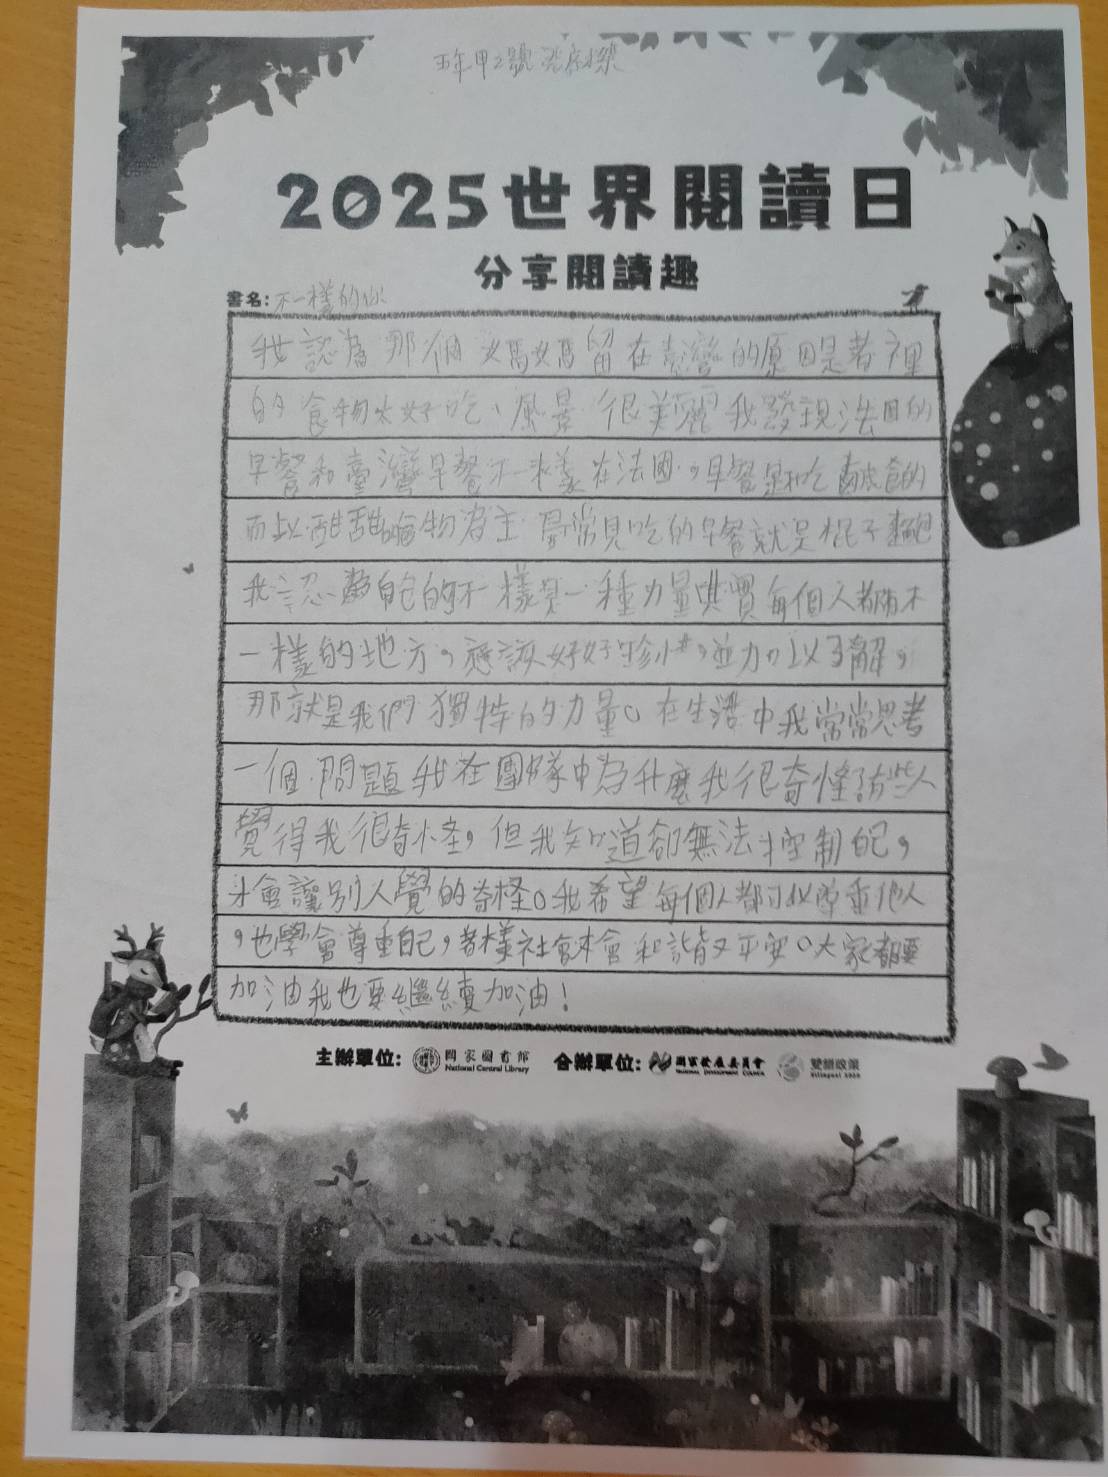 五年甲2號
2025世界閱讀日
分享閱讀趣
書名:不一樣的你
我認為那個媽媽留在臺灣的原因是者裡
的食物太好吃、風景很美麗我發現法國的
早餐和臺灣早餐不一樣在法國,早餐是吃鹹食的
而以甜食物為主 最常見吃的早餐就是棍子麵包
我認為自己的不一樣是一種力量其實每個人都有不
一樣的地方,應該好好珍惜,並加以了解,
那就是我們獨特的力量。在生活中我常常思考
一個問題我在團隊中為什麼我很奇怪有些人
覺得我很奇怪,但我知道卻無法控制自己,
才會讓別人覺的奇怪。我希望每個人都可以尊重他人
,也學會尊重自己,者樣社會才會和諧又平安。大家都要
加油我也要繼續加油!
主辦單位: 國家圖書館 合辦單位: 國家發展委員會 雙語政策
National Central Library NATIONAL DEVELOPMENT COUNCIL Bilingual 2030